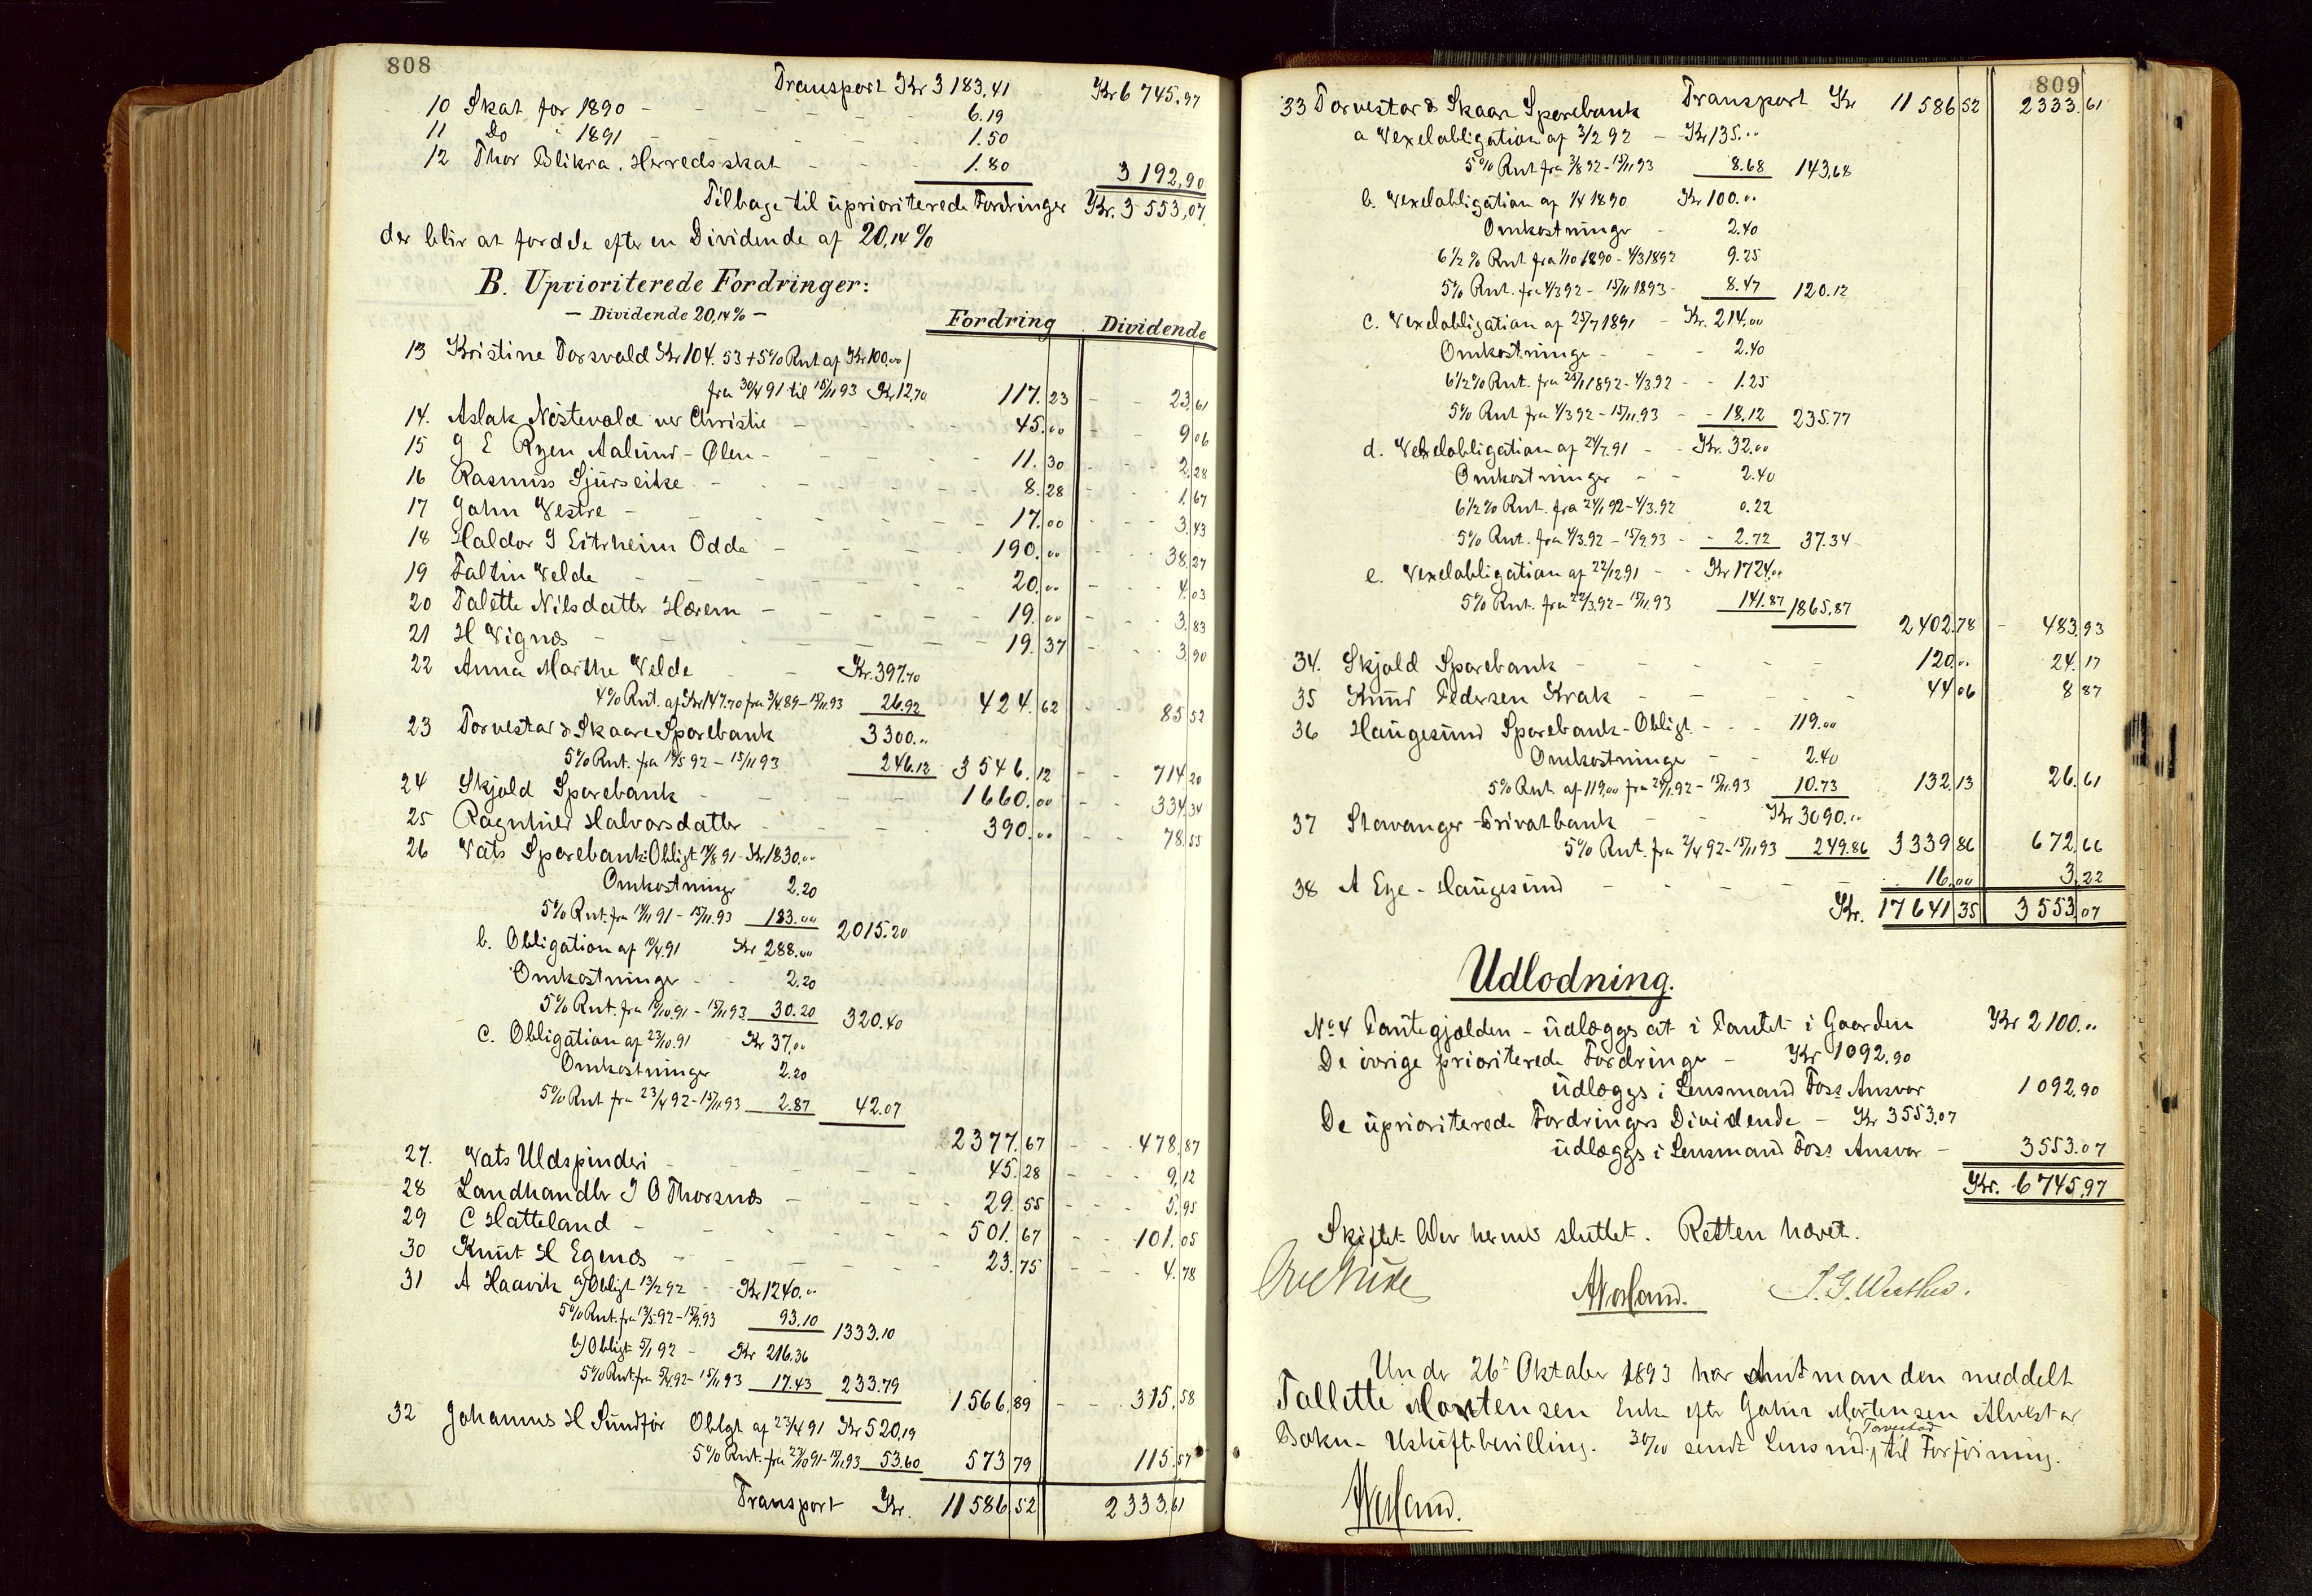 808
Transport Kr 3183.41 Kr 6745.97
10 Skat for 1890 - 6.19
11 Do " 1891 - 1.50
12 Thor Blikra. Herredsskat - 1.80 3192,90
Tilbage til uprioriterede Fordringer Kr. 3553,07
der blir at fordele efter en Dividende af 20,14 %
B. Uprioriterede Fordringer:
- Dividende 20,14% -
Fordring Dividende
13 Kristine Torsvald Kr 104.53 + 5% Rnt af Kr 100.00
fra 30/4 91 til 15/11 93 Kr 12,70 117.23 - 23,61
14. Aslak Nöstevold ver Christie - 45.00 - 9,06
15 G E Ryen Aalund - Ølen - 11.30 - 2,28
16 Rasmus Sjurseike - 8.28 - 1,67
17 John Vestre - 17.00 - 3,43
18 Haldor J Eitrheim Odda - 190.00 - 38,27
19 Faltin Velde - 20.00 - 4,03
20 Talette Nilsdatter Hærem - 19.00 - 3,83
21 H Vignæs - 19.37 - 3,90
22 Anna Marthe Velde Kr. 397.70
4% Rnt. af Kr 147.70 fra 3/4 89 - 15/11 93 26.92 424.62 - 85,52
23 Torvestad & Skaare Sparebank 3300.00
5% Rnt. fra 19/5 92 - 15/11 93 246.12 3546.12 - 714,20
24 Skjold Sparebank - 1660.00 - 334,34
25 Ragnhild Halvorsdatter - 390.00 - 78,55
26 Vats Sparebank: Obligt 14/8 91 - Kr 1830.00
Omkostninger 2.20
5% Rnt. fra 14/11 91 - 15/11 93 183.00 2015.20
b. Obligation af 10/4 91 Kr 288.00
Omkostninger - 2.20
5% Rnt. fra 10/10.91 - 15/11 93 30.20 320.40
c. Obligation af 23/10.91 Kr 37,00
Omkostninger 2.20
5% Rnt fra 23/4 92 - 15/11 93 2.87 42.07
2377.67 - 478,87
27. Vats Uldspinderi - 45.28 - 9,12
28 Landhandler J O Thorsnæs - 29.55 - 5,95
29 C Hatteland - 501.67 - 101.05
30 Knut H Egenæs - 23.75 - 4.78
31 A Haavik a) Obligt 13/2 92 - Kr 1240.00
5% Rnt. fra 13/5.92 - 15/11.93 93.10 1333.10
b) Obligt 5/1 92 - Kr 216.36
5% Rnt. fra 5/4.92 - 15/11 93 17.43 233.79 1566,89 - 315,58
32 Johannes H Sundför Oblgt af 23/4 91 Kr 520,19
5% Rnt. fra 23/10 91 - 15/11.93 53.60 573,79 115.57
Transport Kr. 11586,52 2333,61
809
33 Torvestad & Skaare Sparebank Transport Kr 11586,52 2333,61
a Vexelobligation af 3/2 92 - Kr 135.00
5% Rnt fra 3/8 92 - 15/11 93 8.68 143,68
b. Vexelobligation af 1/4 1890 Kr 100.00
Omkostninger - 2.40
6 1/2 % Rnt fra 1/10 1890 - 4/3 1892 9.25
5% Rnt. fra 4/3 92 - 15/11 1893 - 8.47 120.12
c. Vexelobligation af 25/7 1891 - Kr. 214.00
Omkostninger - 2.40
6 1/2 % Rnt. fra 25/1 1892 - 4/3.92 - 1.25
5% Rnt fra 4/3 92 - 15/11.93 - 18.12 235.77
d. Vexelobligation af 24/7.91 - Kr. 32.00
Omkostninger - 2.40
6 1/2 % Rnt. fra 24/1 92 - 4/3.92 0.22
5% Rnt. fra 4/3.92 - 15/11.93 - 2.72 37.34
e. Vexelobligation af 22/12 91 - Kr 1724.00
5% Rnt. fra 22/3.92 - 15/11.93 141.87 1865.87
2402,78 - 483,93
34. Skjold Sparebank - 120.00 24.17
35 Knud Pedersen Krak - 44,06 8,87
36 Haugesund Sparebank - Obligt - 119.00
Omkostninger 2.40
5% Rnt af 119,00 fra 29/1.92 - 15/11.93 10.73 132,13 26.61
37 Stavanger Privatbank - Kr 3090.00
5% Rnt. fra 2/4 92 - 15/11 93 249.86 3339,86 672,66
38 A Ege - Haugesund - 16,00 3,22
Kr. 17641,35 3553,07
Udlodning.
No 4 Pantegjælden - udlægges at i Pantet i Gaarden Kr 2100.00
De övrige prioriterede Fordringer - Kr 1092.90
udlægges i Lensmand Foss Ansvar 1092,90
De uprioriterede Fordringers Dividende - Kr 3553.07
udlægges i Lensmand Foss Ansvar - 3553.07
Kr. 6745,97
Skiftet blev hermed sluttet. Retten hævet.
Under 26de Oktober 1893 har Amtmanden meddelt
Tallette Mortensen Enke efter John Mortensen
Bokn - Uskiftebevilling. 30/10 sendt Lensmd i Torvestad til Forföining.